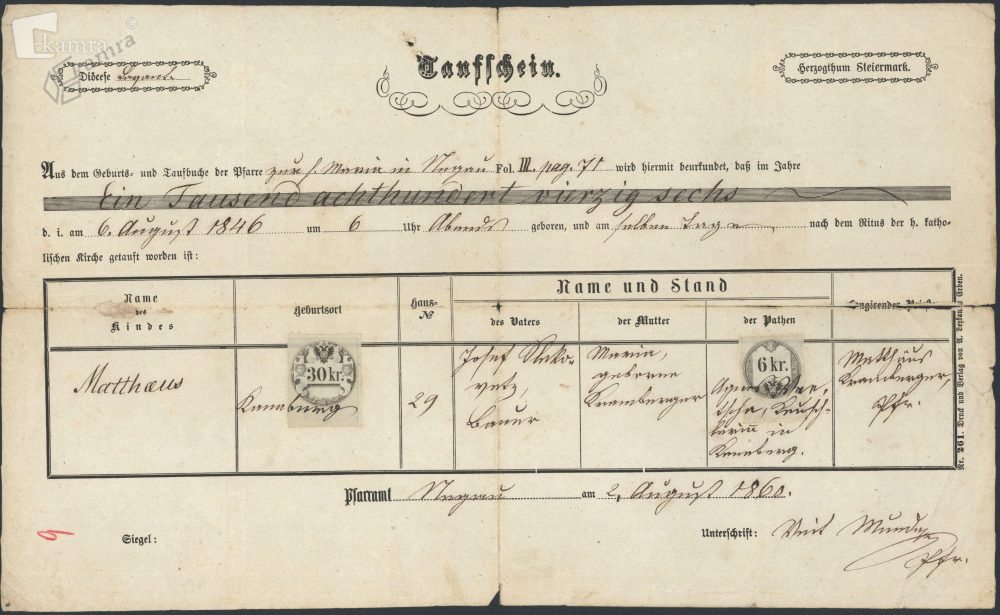 kamra
kamra
Diöcese Lavant.
Taufschein.
Herzogthum Steiermark.
Aus dem Geburts- und Taufbuche der Pfarre zur h. Maria in Negau Fol. III. pag. 71 wird hiermit beurkundet, daß im Jahre
Ein Tausend achthundert vierzig sechs
d. i. am 6. August 1846 um 6 Uhr Abends geboren, und am selben Tage nach dem Ritus der h. katho-
lischen Kirche getauft worden ist:
Name
des
Kindes
Geburtsort
Haus-
№
Name und Stand
des Vaters
der Mutter
der Pathen
Matthaeus
30 kr.
29
Josef
Bauer
Maria,
geborne
Kramberger
6 kr.
in
Matthäus
Kramberger,
Pfr.
Nr. 261. Druck und Verlag von A. Leykam's Erben.
Pfarramt Negau am 2. August 1860.
Siegel:
Unterschrift: Veit
Pfr.